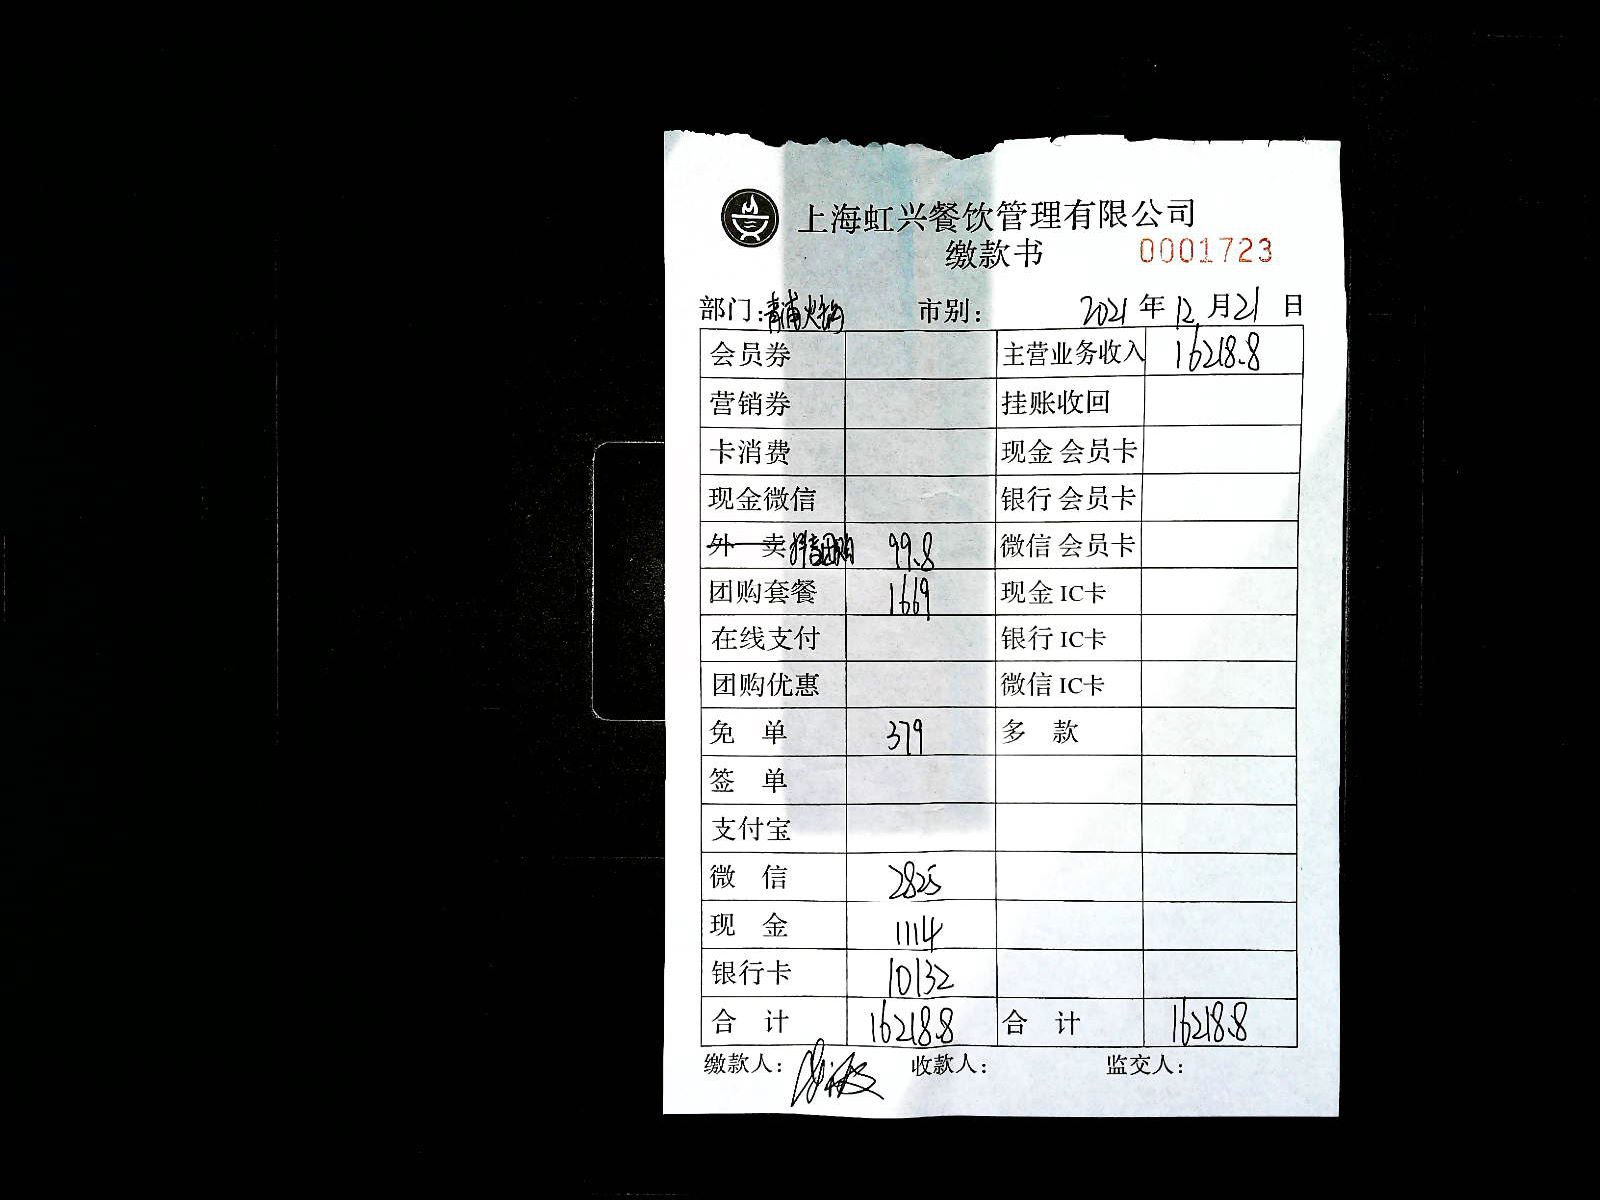 上海虹兴餐饮管理有限公司
缴款书 0001723
部门:青浦火锅 市别: 2021年12月21日
会员券 主营业务收入 16218.8
营销券 挂账收回
卡消费 现金会员卡
现金微信 银行会员卡
外卖抖音团购 99.8 微信会员卡
团购套餐 1669 现金IC卡
在线支付 银行IC卡
团购优惠 微信IC卡
免单 379 多款
签单
支付宝
微信 2825
现金 1114
银行卡 10132
合计 16218.8 合计 16218.8
缴款人: 收款人: 监交人: